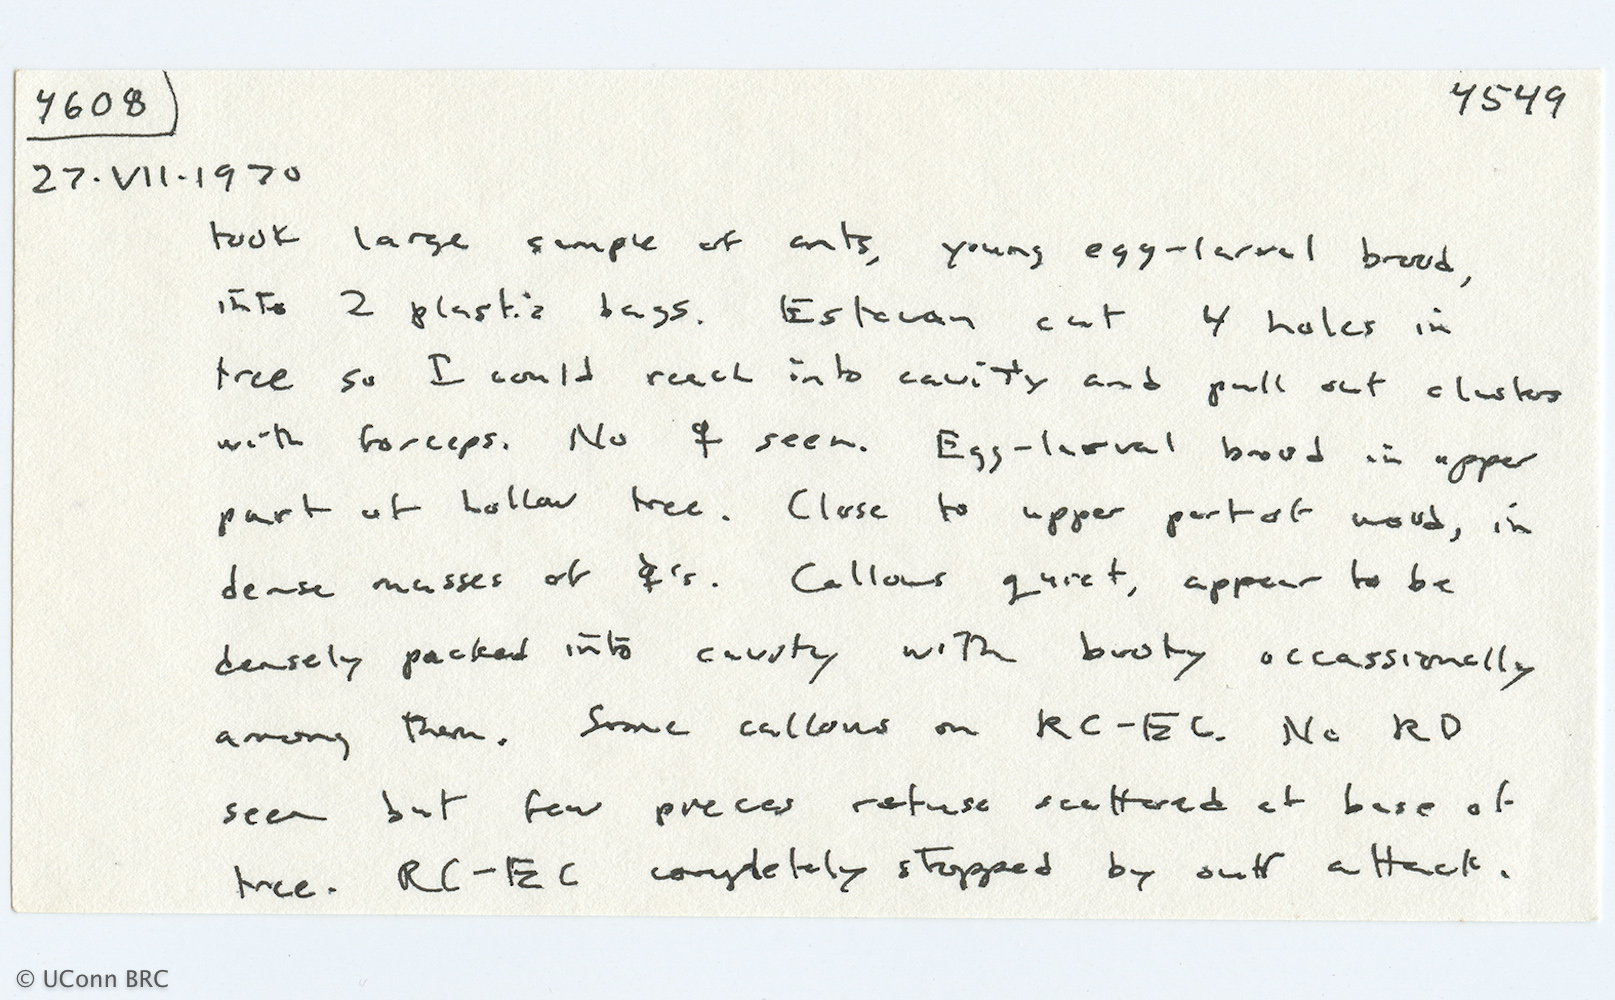 4608 4549
27.VII.1970
took large sample of ants, young egg-larval brood,
into 2 plastic bags. Estavan cut 4 holes in
tree so I could reach into cavity and pull out clusters
with forceps. No ♀ seen. Egg-larval brood in upper
part of hollow tree. Close to upper part of wood, in
dense masses of ☿'s. Callows quiet, appear to be
densely packed into cavity with booty occassionally
among them. Some callows on RC-EC. No RD
seen but few pieces refuse scattered at base of
tree. RC-EC completely stopped by our attack.
© UConn BRC